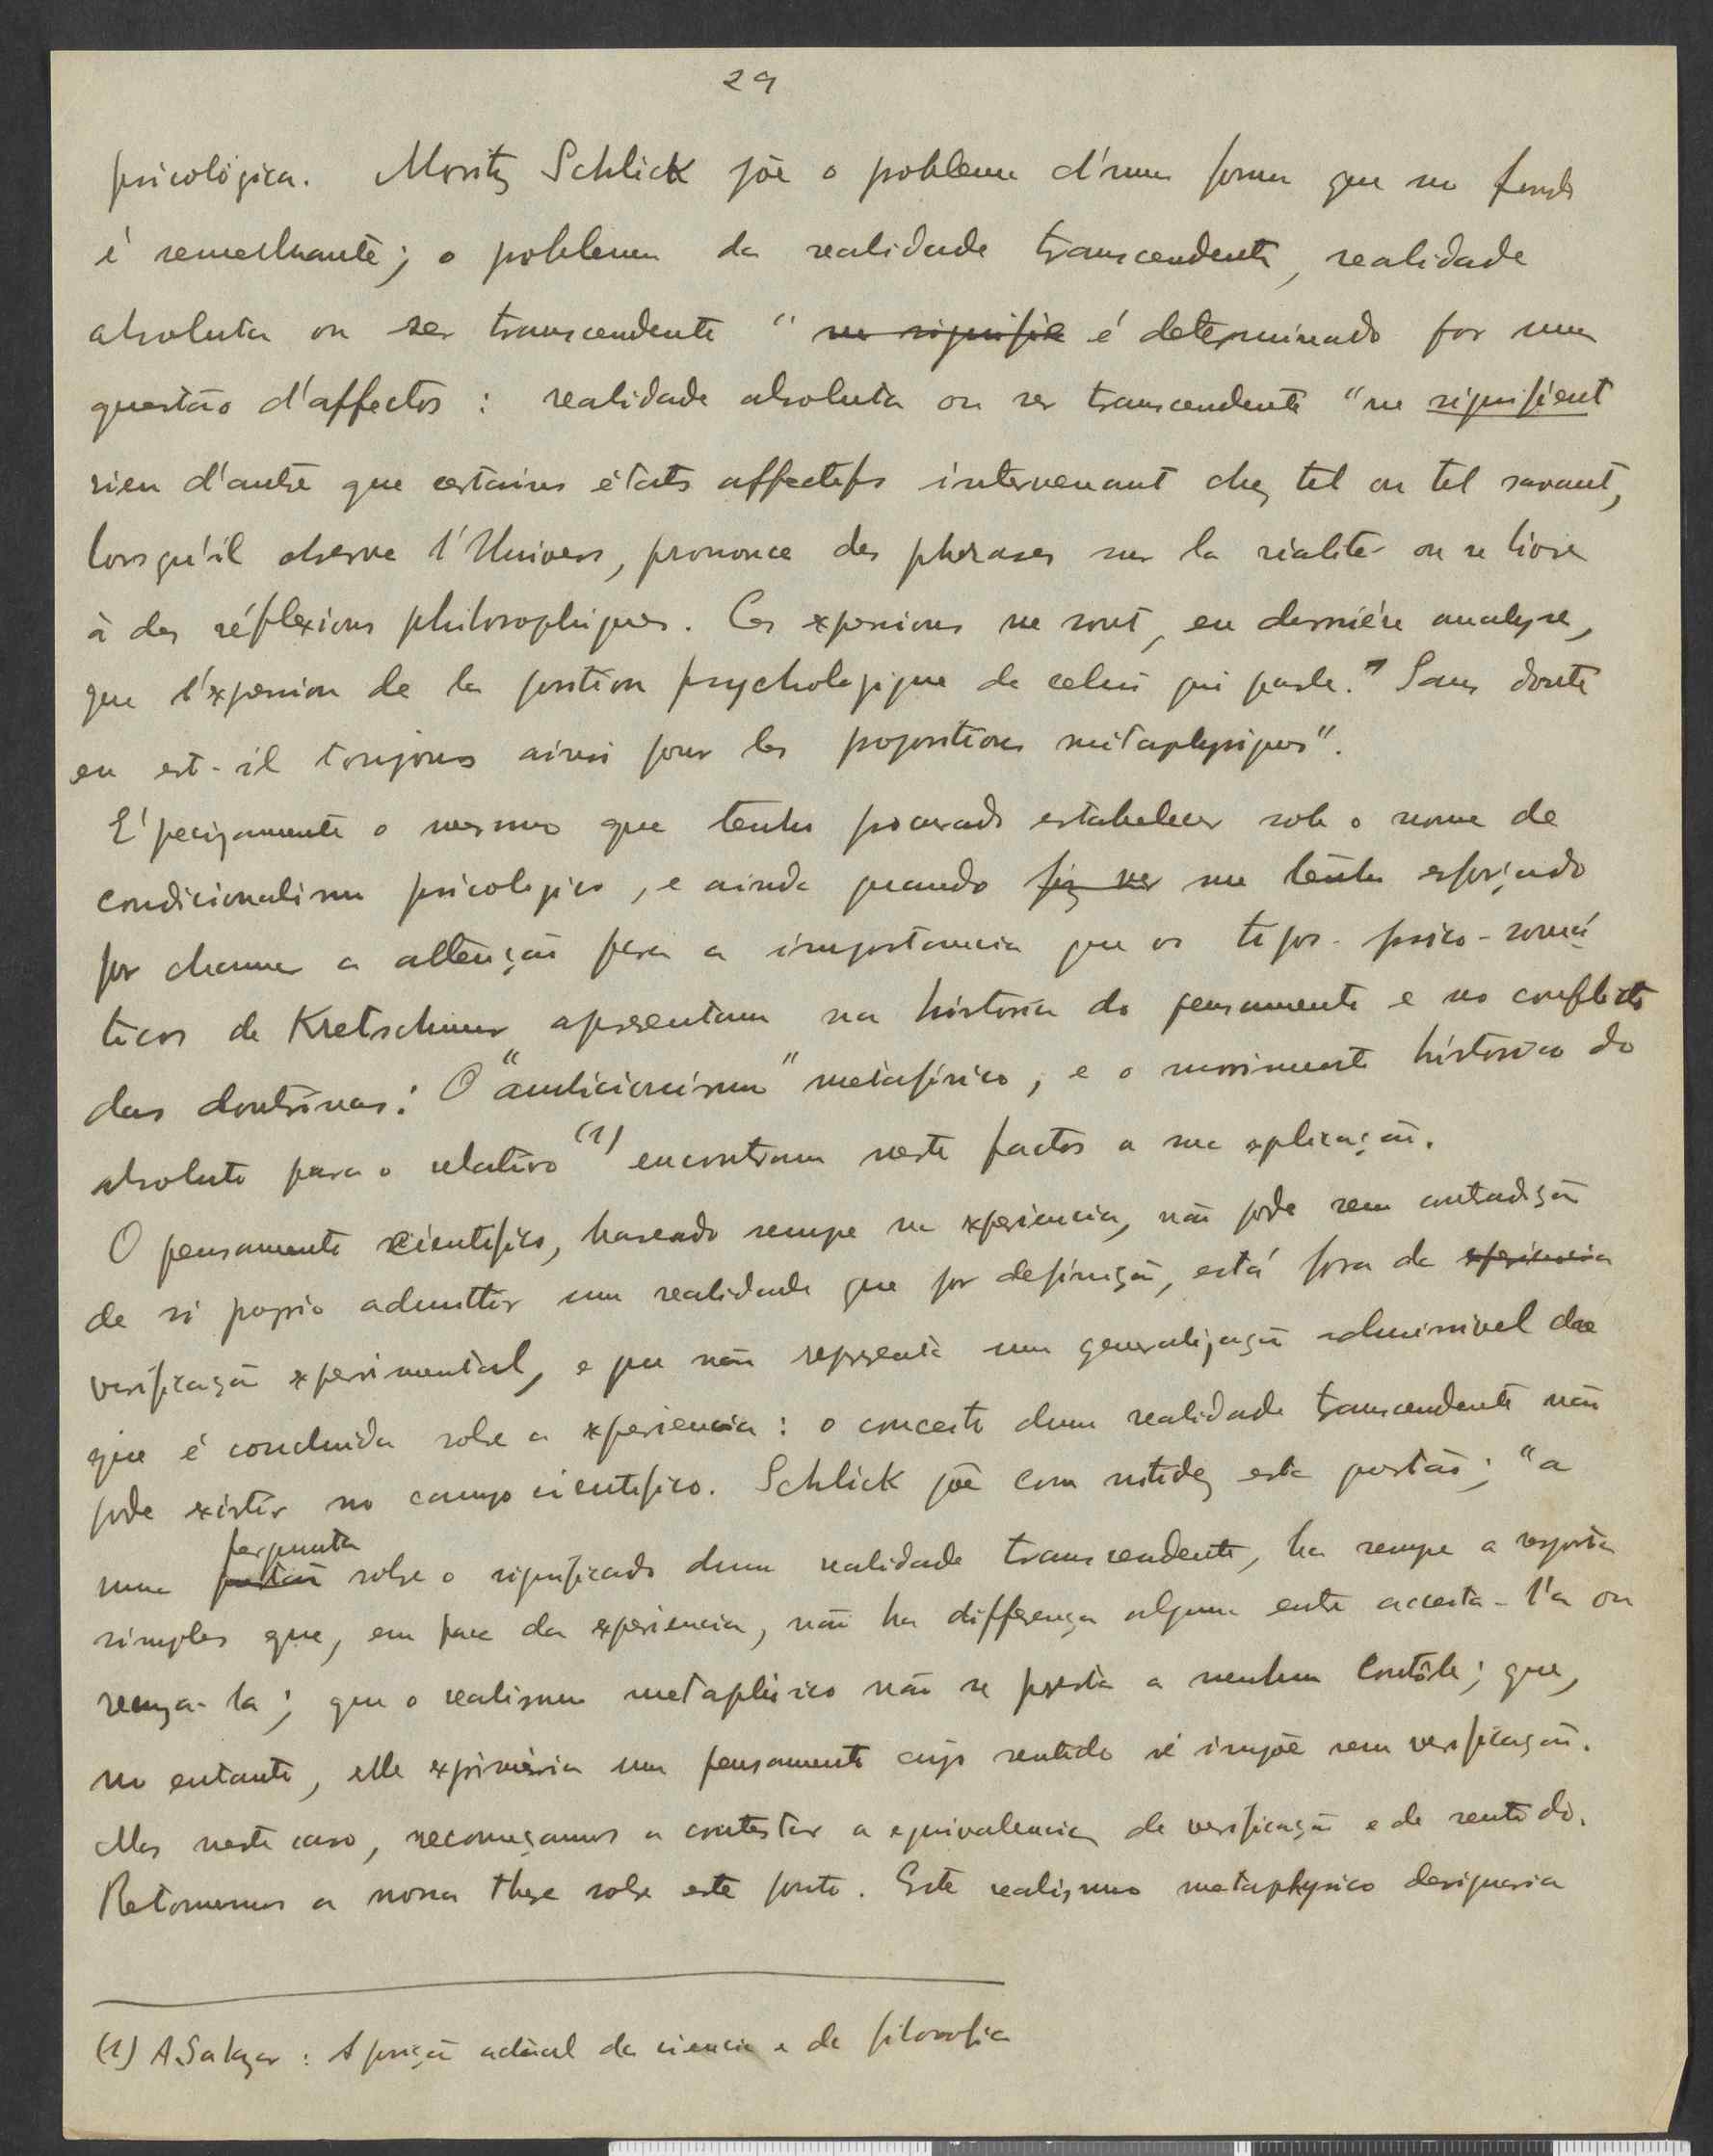 29
psicológica. Moritz Schlick põe o problema d'uma forma que no fundo
é semelhante; o problema da realidade transcendente, realidade
absoluta ou ser transcendente " ne signifie é determinado por uma
questão d'affectos : realidade absoluta ou ser transcendente "ne signifient
rien d'autre que certains états affectifs intervenant chez tel ou tel savant,
lorsqu'il observe l'Univers, prononce des phrases sur la réalité ou se livre
à des réflexions philosophiques. Ces expressions ne sont, en dernière analyse,
que l'expression de la position psychologique de celui qui parle." Sans doute
en est-il toujours ainsi pour les propositions métaphysiques".
E' precizamente o mesmo que tenho procurado estabelecer sob o nome de
condicionalismo psicologico, e ainda quando fiz ver me tenho esforçado
por chamar a attenção para a importancia que os tipos psico-somá
ticos de Kretschmer apresentam na historia do pensamento e no conflicto
das doutrinas: O metafísico, e o movimento historico do
absoluto para o relativo (1) encontram neste factos a sua explicação.
O pensamento scientifico, baseado sempre na experiencia, não pode sem contradição
de si proprio admittir uma realidade que por definição, está fora da experiencia
verificação experimental, e que não representa uma generalização admissivel do
que é concluida sobre a experiencia : o conceito duma realidade transcendente não
pode existir no campo cientifico. Schlick põe com nitidez esta questão; "a
pergunta
uma questão sobre o significado duma realidade transcendente, ha sempre a resposta
simples que, em face da experiencia, não ha differença alguma entre acceita-l'a ou
recuza-la; que o realismo metaphisico não se presta a nenhum contrôle; que,
no entanto, elle exprimiria um pensamento cujo sentido se impõe sem verificação.
Mas neste caso, recomeçamos a contestar a equivalencia de verificação e de sentido.
Retomemos a nossa these sobre este ponto. Este realismo metaphysico designaria
(1) A. Salazar : A posição actual da ciencia e da filosofia